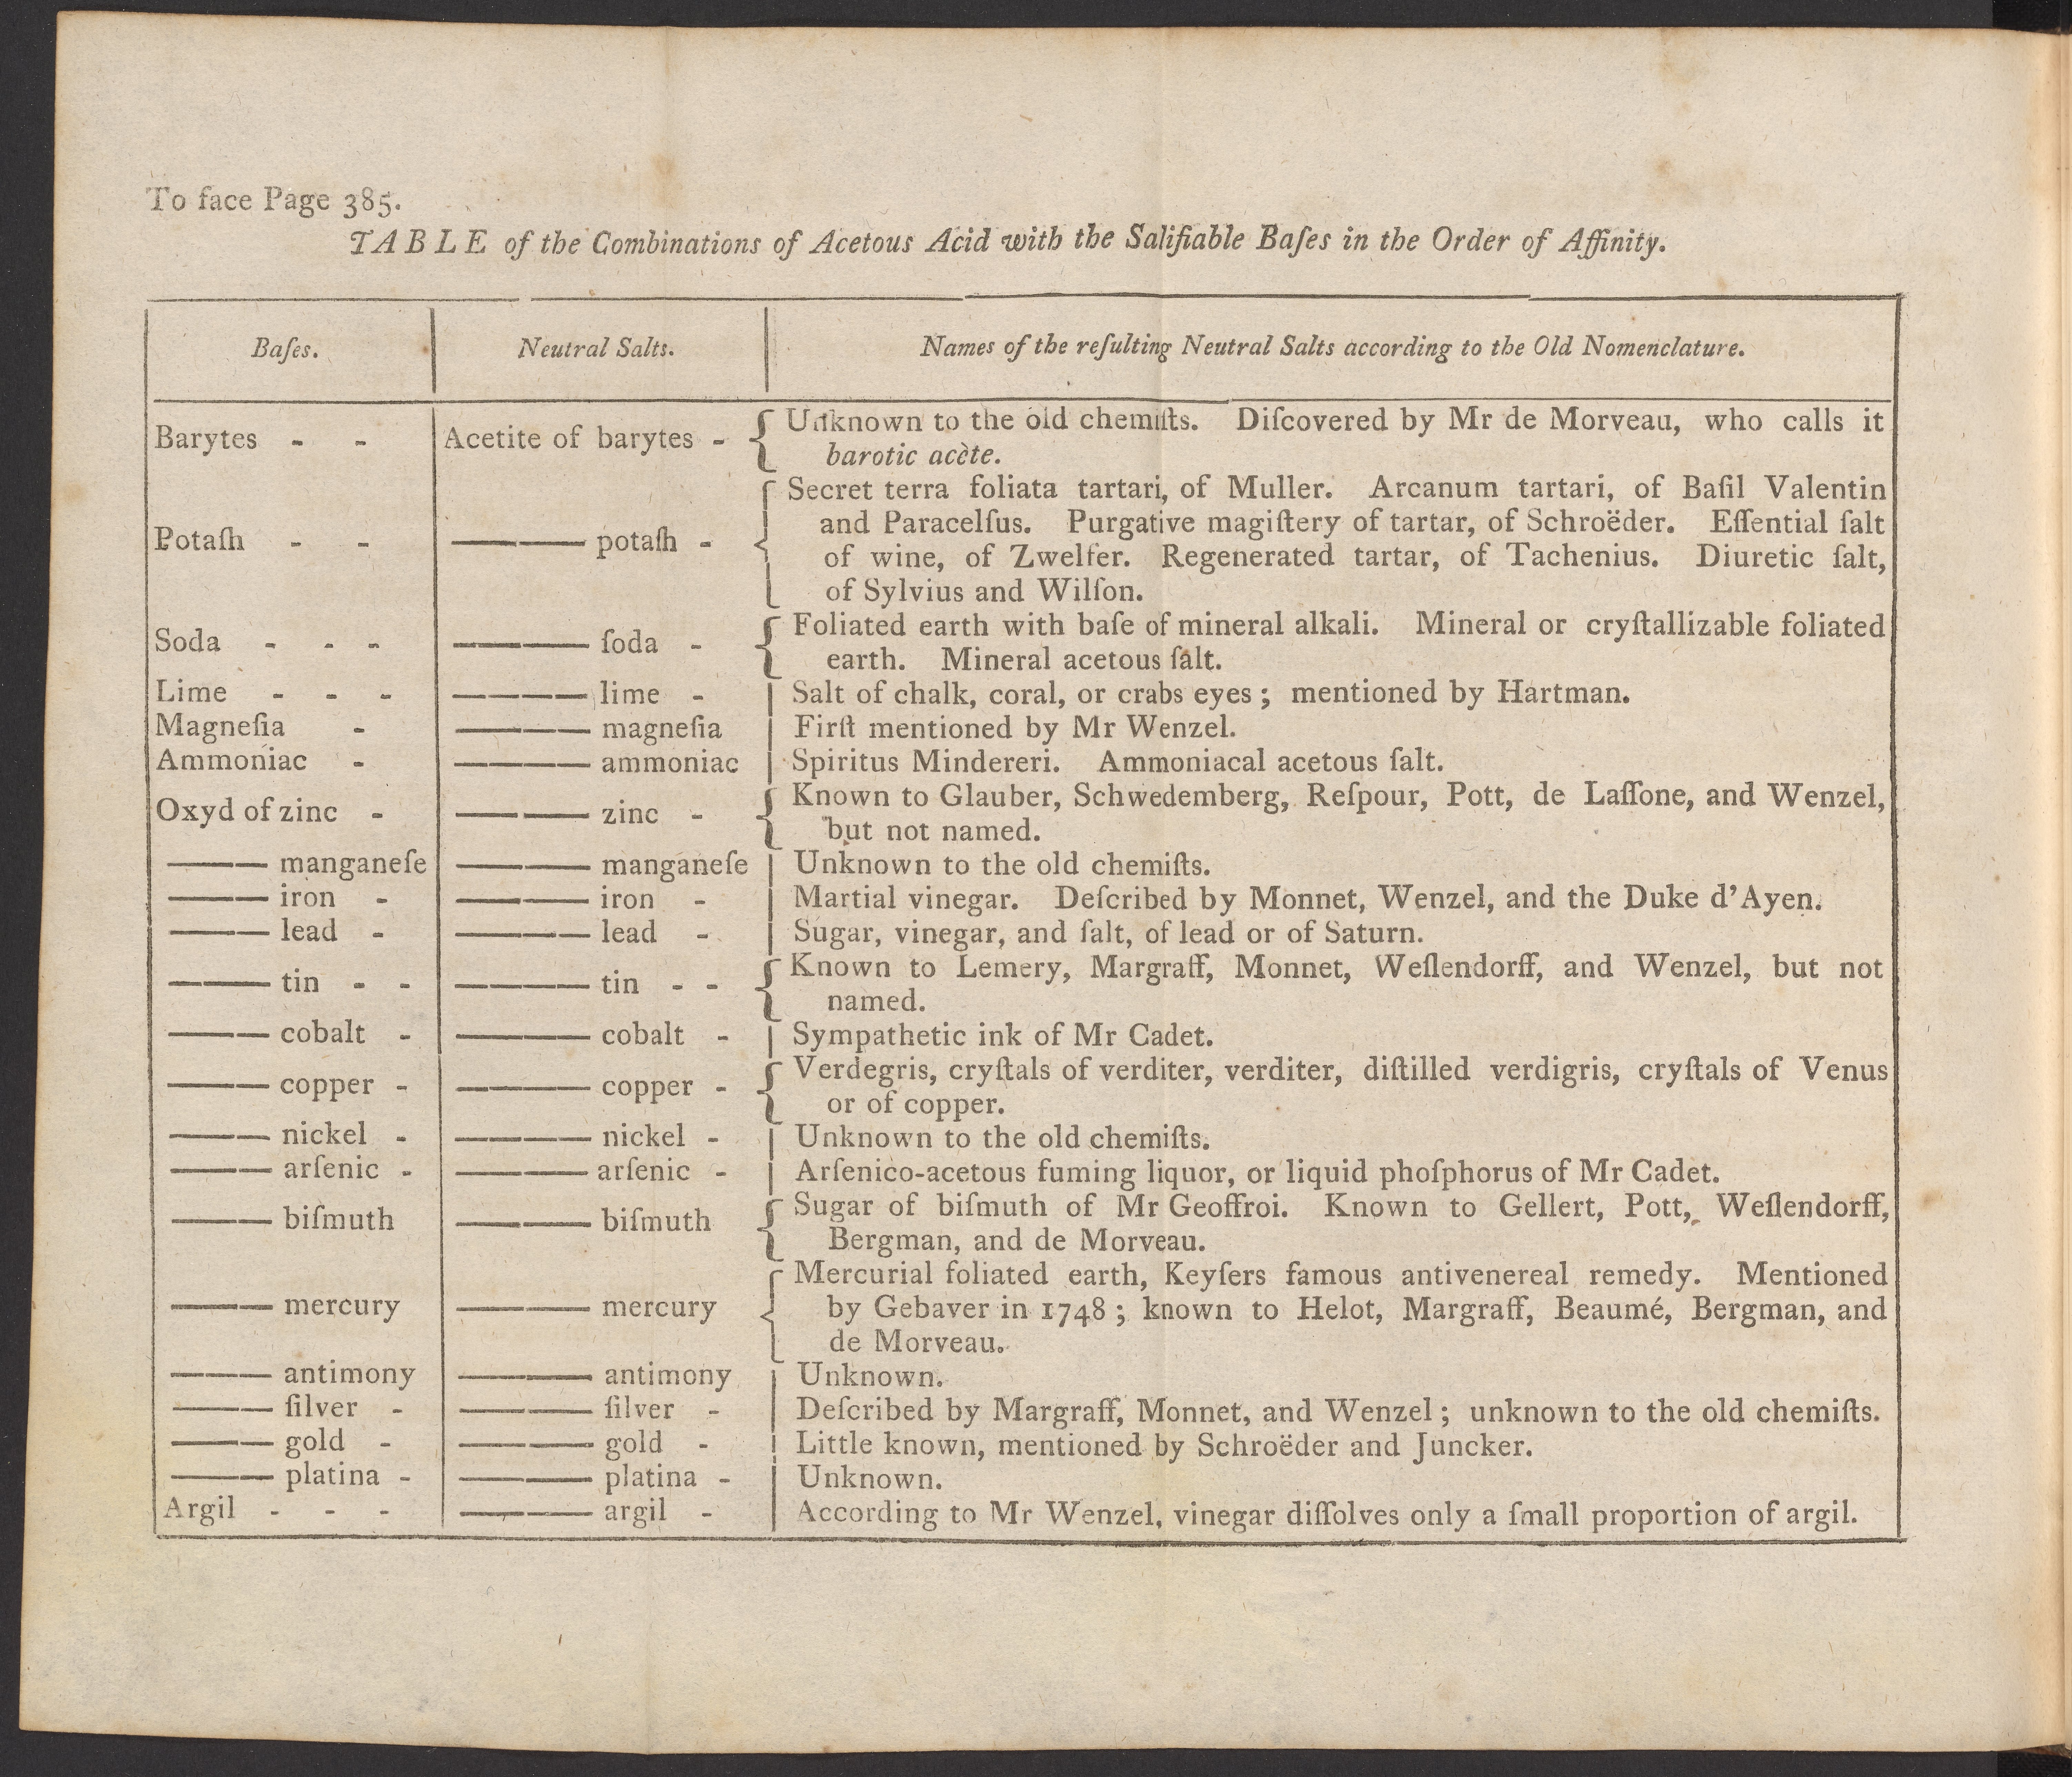 To face Page 385.
TABLE of the Combinations of Acetous Acid with the Salifiable Baſes in the Order of Affinity.
Baſes. Neutral Salts. Names of the reſulting Neutral Salts according to the Old Nomenclature.
Barytes - - Acetite of barytes - { Unknown to the old chemiſts. Diſcovered by Mr de Morveau, who calls it
barotic acète.
Secret terra foliata tartari, of Muller. Arcanum tartari, of Baſil Valentin
and Paracelſus. Purgative magiſtery of tartar, of Schroëder. Eſſential ſalt
Potaſh - - ——— potaſh - { of wine, of Zwelfer. Regenerated tartar, of Tachenius. Diuretic ſalt,
of Sylvius and Wilſon.
Soda - - - ——— ſoda - { Foliated earth with baſe of mineral alkali. Mineral or cryſtallizable foliated
earth. Mineral acetous ſalt.
Lime - - - ——— lime - | Salt of chalk, coral, or crabs eyes; mentioned by Hartman.
Magneſia - ——— magneſia | Firſt mentioned by Mr Wenzel.
Ammoniac - ——— ammoniac | Spiritus Mindereri. Ammoniacal acetous ſalt.
Oxyd of zinc - ——— zinc - { Known to Glauber, Schwedemberg, Reſpour, Pott, de Laſſone, and Wenzel,
but not named.
——— manganeſe ——— manganeſe | Unknown to the old chemiſts.
——— iron - ——— iron - | Martial vinegar. Deſcribed by Monnet, Wenzel, and the Duke d'Ayen.
——— lead - ——— lead - | Sugar, vinegar, and ſalt, of lead or of Saturn.
——— tin - - ——— tin - - { Known to Lemery, Margraff, Monnet, Weſlendorff, and Wenzel, but not
named.
——— cobalt - ——— cobalt - | Sympathetic ink of Mr Cadet.
——— copper - ——— copper - { Verdegris, cryſtals of verditer, verditer, diſtilled verdigris, cryſtals of Venus
or of copper.
——— nickel - ——— nickel - | Unknown to the old chemiſts.
——— arſenic - ——— arſenic - | Arſenico-acetous fuming liquor, or liquid phoſphorus of Mr Cadet.
——— biſmuth ——— biſmuth { Sugar of biſmuth of Mr Geoffroi. Known to Gellert, Pott, Weſlendorff,
Bergman, and de Morveau.
Mercurial foliated earth, Keyſers famous antivenereal remedy. Mentioned
——— mercury ——— mercury { by Gebaver in 1748; known to Helot, Margraff, Beaumé, Bergman, and
de Morveau.
——— antimony ——— antimony | Unknown.
——— ſilver - ——— ſilver - | Deſcribed by Margraff, Monnet, and Wenzel; unknown to the old chemiſts.
——— gold - ——— gold - | Little known, mentioned by Schroëder and Juncker.
——— platina - ——— platina - | Unknown.
Argil - - - ——— argil - | According to Mr Wenzel, vinegar diſſolves only a ſmall proportion of argil.